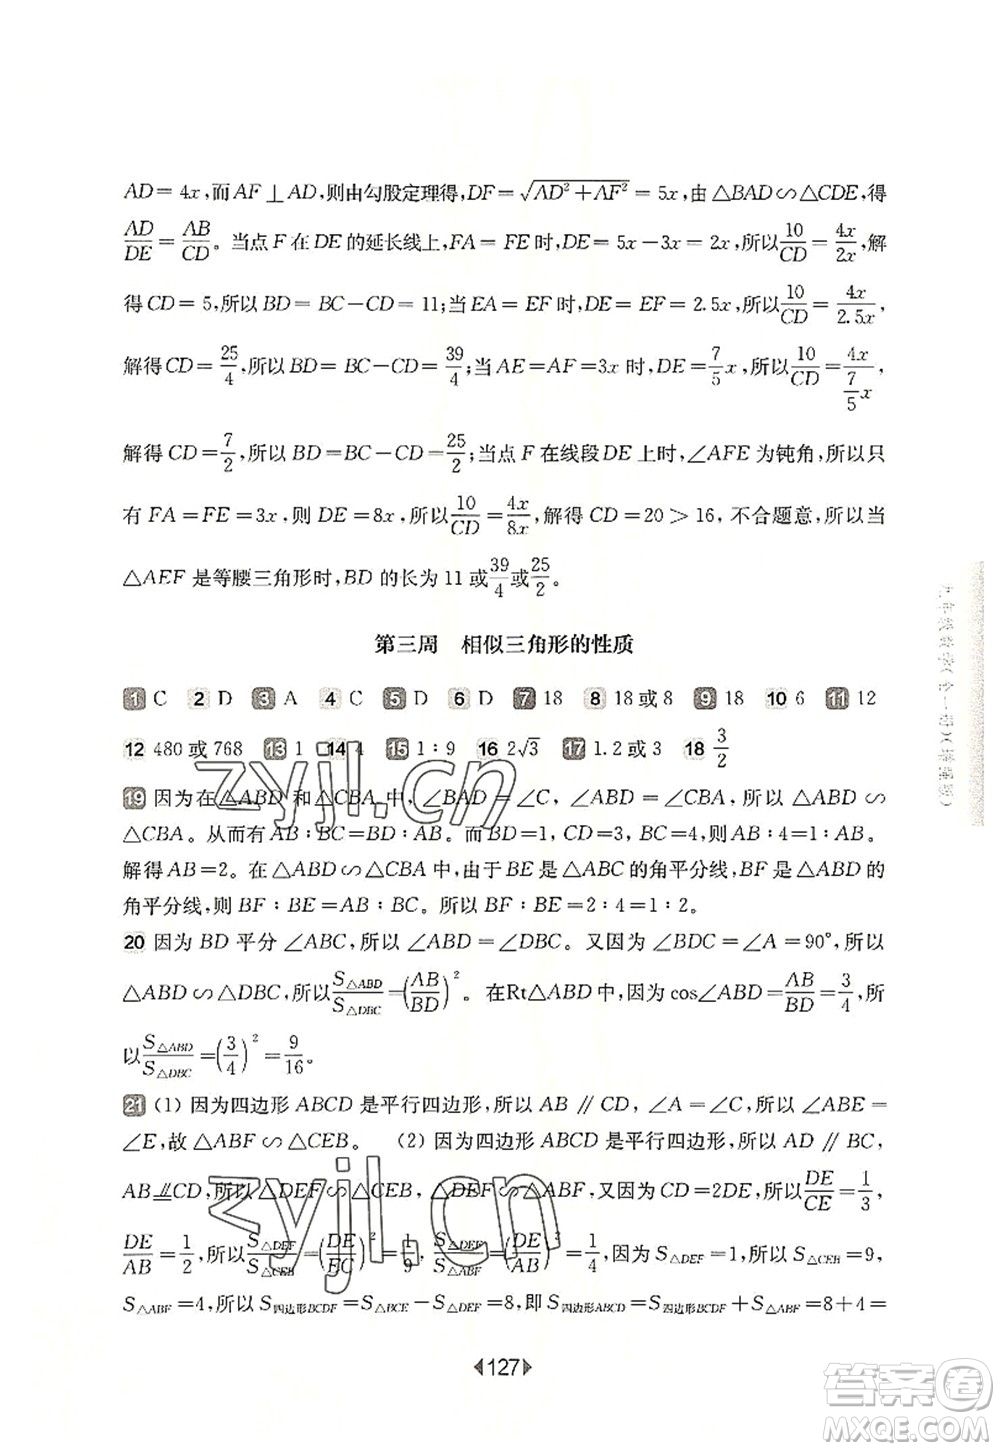 AD=4x,而 AF⊥AD,则由勾股定理得,DF=√(AD²+AF²)=5x,由△BAD∽△CDE,得
AD/DE=AB/CD。当点 F 在 DE 的延长线上,FA=FE 时,DE=5x-3x=2x,所以10/CD=4x/2x,解
得 CD=5,所以 BD=BC-CD=11;当 EA=EF 时,DE=EF=2.5x,所以10/CD=4x/2.5x,
解得 CD=25/4,所以 BD=BC-CD=39/4;当 AE=AF=3x 时,DE=7/5 x,所以10/CD=4x/(7/5 x),
解得 CD=7/2,所以 BD=BC-CD=25/2;当点 F 在线段 DE 上时,∠AFE 为钝角,所以只
有 FA=FE=3x,则 DE=8x,所以10/CD=4x/8x,解得 CD=20>16,不合题意,所以当
△AEF 是等腰三角形时,BD 的长为 11 或39/4或25/2。
第三周 相似三角形的性质
1 C 2 D 3 A 4 C 5 D 6 D 7 18 8 18 或 8 9 18 10 6 11 12
12 480 或 768 13 1 14 4 15 1:9 16 2√3 17 1.2 或 3 18 3/2
19 因为在△ABD 和△CBA 中,∠BAD=∠C,∠ABD=∠CBA,所以△ABD∽
△CBA。从而有 AB:BC=BD:AB。而 BD=1,CD=3,BC=4,则 AB:4=1:AB。
解得 AB=2。在△ABD∽△CBA 中,由于 BE 是△ABC 的角平分线,BF 是△ABD 的
角平分线,则有 BF:BE=AB:BC。所以 BF:BE=2:4=1:2。
20 因为 BD 平分∠ABC,所以∠ABD=∠DBC。又因为∠BDC=∠A=90°,所以
△ABD∽△DBC,所以S△ABD/S△DBC=(AB/BD)²。在Rt△ABD中,因为 cos∠ABD=AB/BD=3/4,所
以S△ABD/S△DBC=(3/4)²=9/16。
21 (1) 因为四边形 ABCD 是平行四边形,所以 AB∥CD,∠A=∠C,所以∠ABE=
∠E,故△ABF∽△CEB。 (2) 因为四边形 ABCD 是平行四边形,所以 AD∥BC,
AB∥CD,所以△DEF∽△CEB,△DEF∽△ABF,又因为 CD=2DE,所以DE/CE=1/3,
DE/AB=1/2,所以S△DEF/S△CEB=(DE/EC)²=1/9,S△DEF/S△ABF=(DE/AB)²=1/4,因为 S△DEF=1,所以 S△CEB=9,
S△ABF=4,所以 S四边形BCDF=S△BCE-S△DEF=8,即 S四边形ABCD=S四边形BCDF+S△ABF=8+4=
127
九年级数学(全一册)(增强版)
zyjl.cn
zyjl.cn
答案圈
MXQE.COM